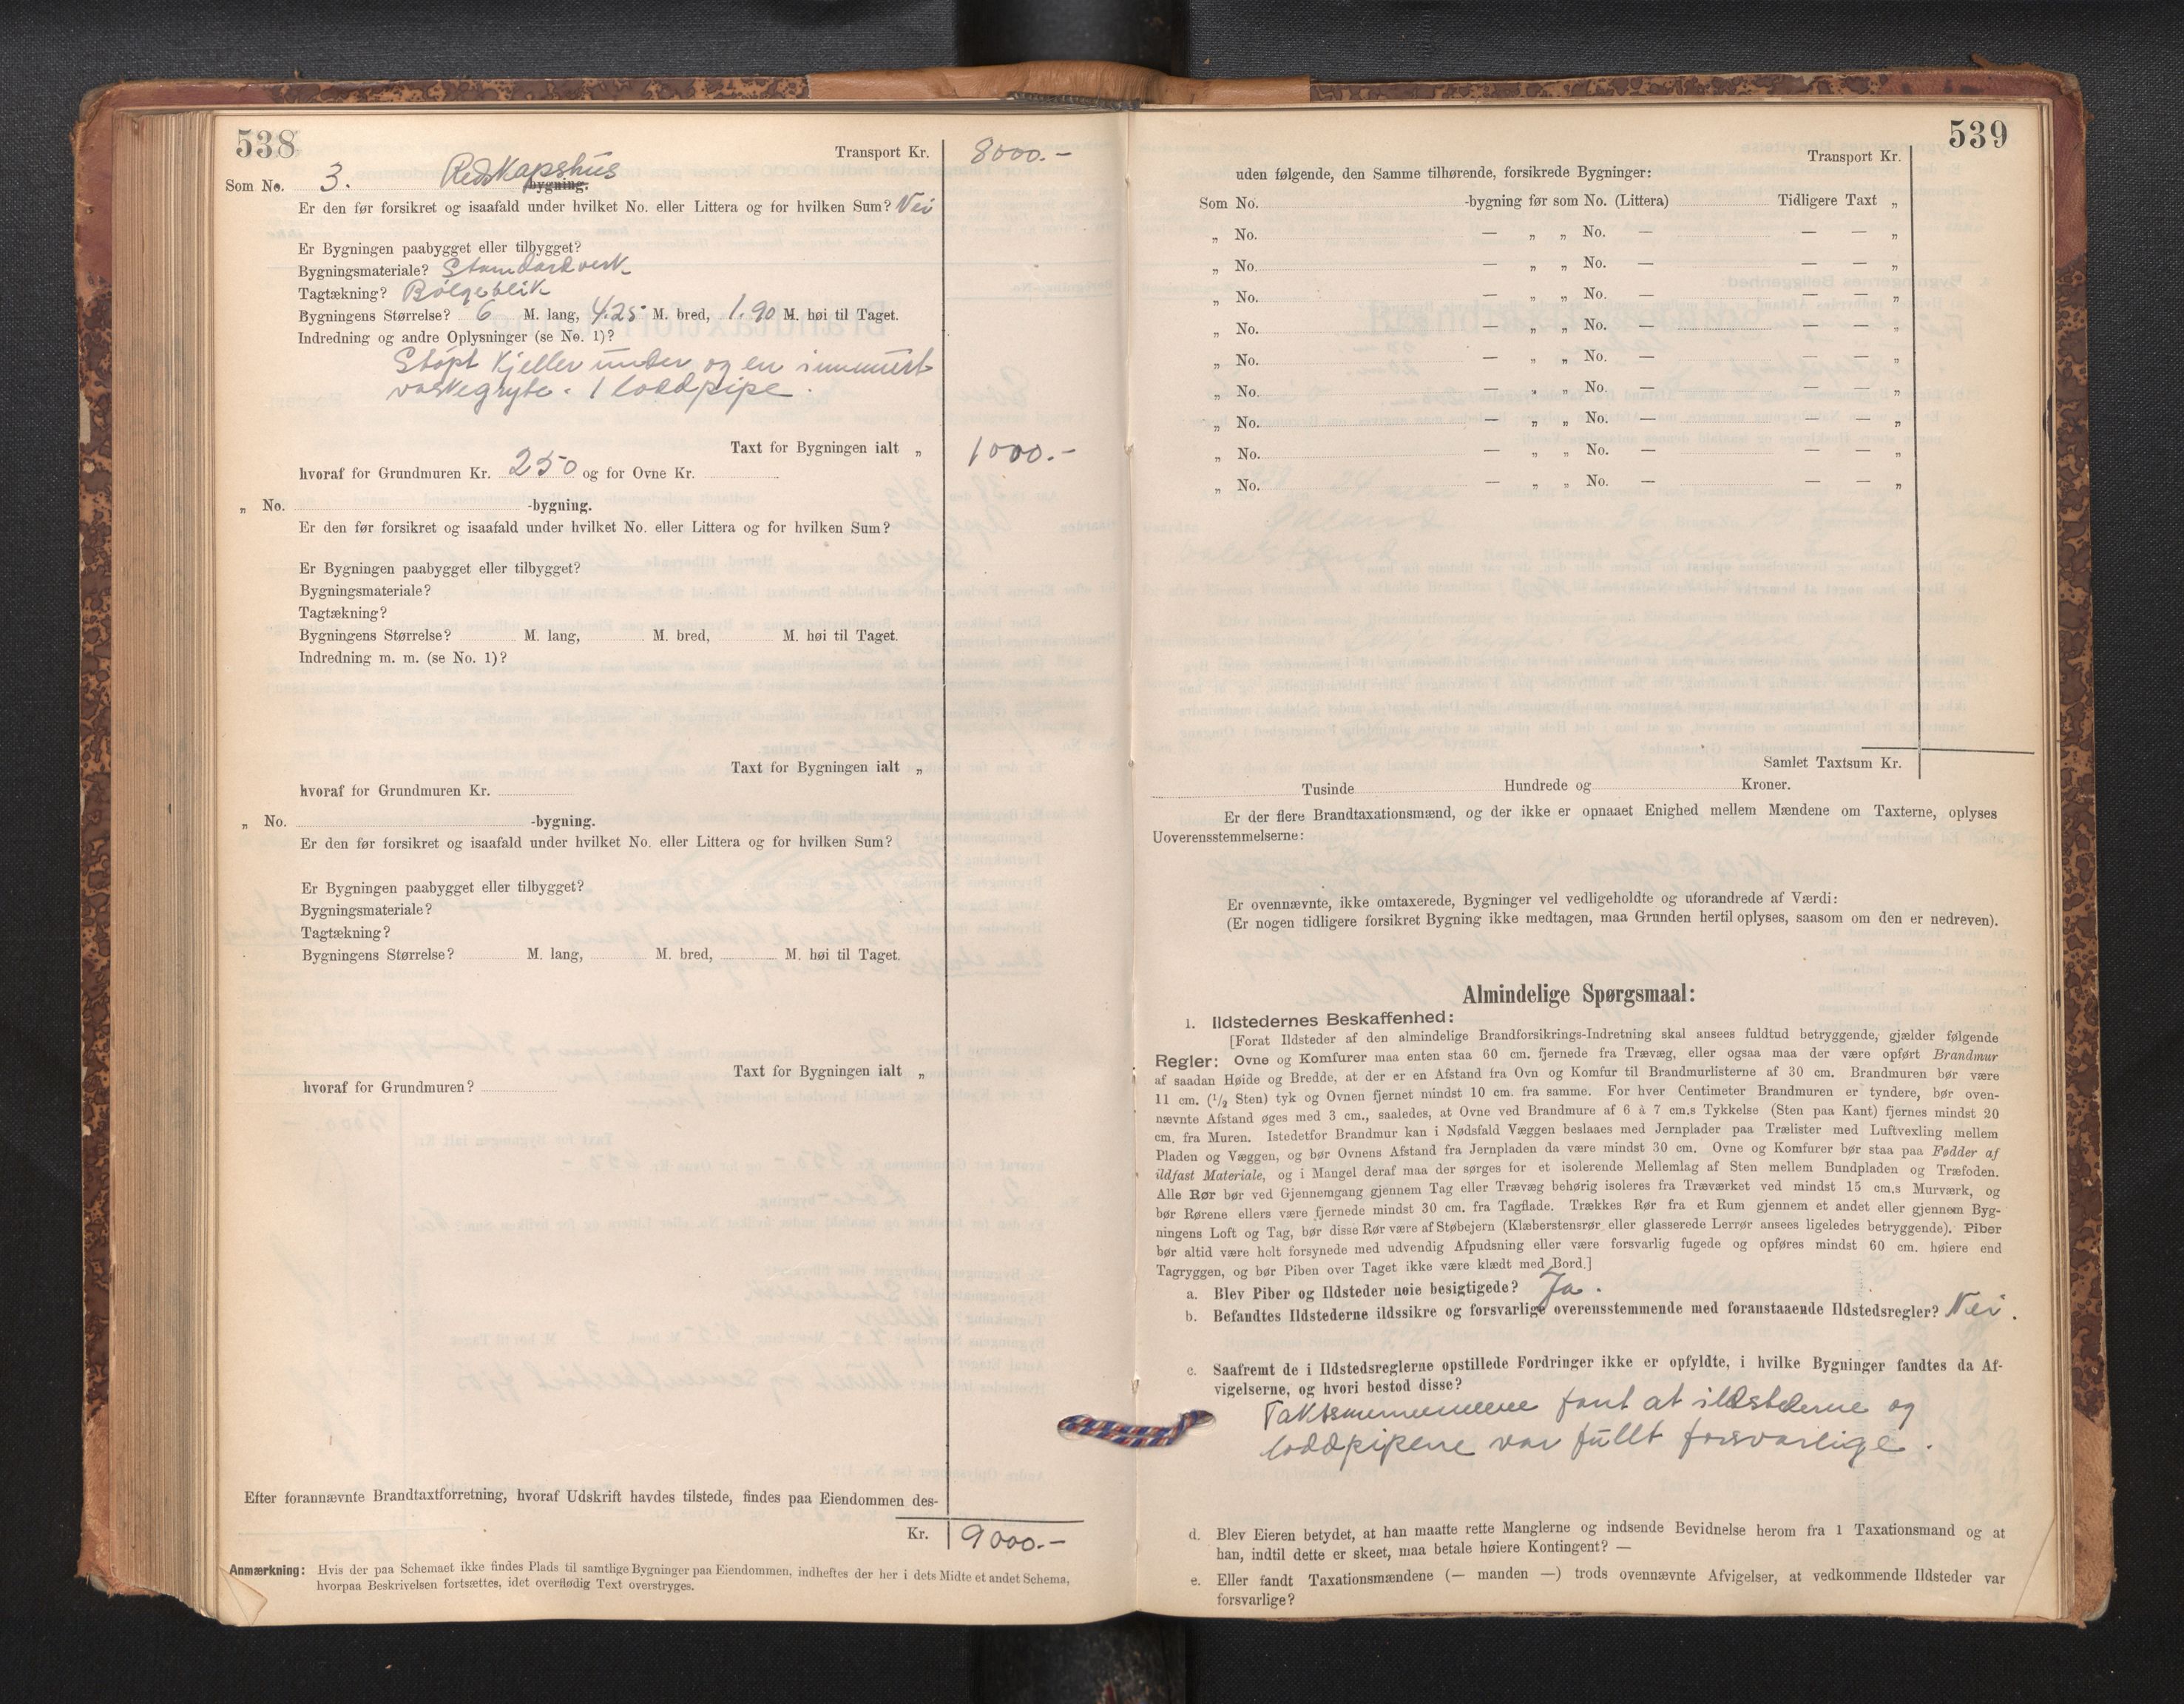 538
Transport Kr. 8000.-
Som No. 3. Redskapshus bygning.
Er den før forsikret og isaafald under hvilket No. eller Littera og for hvilken Sum? Nei
Er Bygningen paabygget eller tilbygget?
Bygningsmateriale? Standardverk
Tagtækning? Bölgeblik
Bygningens Størrelse? 6 M. lang, 4.25 M. bred, 1.90 M. høi til Taget.
Indredning og andre Oplysninger (se No. 1)?
Stöpt Kjeller under og en inmurt
vaskegryte. 1 loddpipe.
Taxt for Bygningen ialt „ 1000.-
hvoraf for Grundmuren Kr. 250 og for Ovne Kr.
„ No. -bygning.
Er den før forsikret og isaafald under hvilket No. eller Littera og for hvilken Sum?
Er Bygningen paabygget eller tilbygget?
Bygningsmateriale?
Tagtækning?
Bygningens Størrelse? M. lang, M. bred, M. høi til Taget.
Indredning m. m. (se No. 1)?
Taxt for Bygningen ialt „
hvoraf for Grundmuren Kr.
„ No. -bygning.
Er den før forsikret og isaafald under hvilket No. eller Littera og for hvilken Sum?
Er Bygningen paabygget eller tilbygget?
Bygningsmateriale?
Tagtækning?
Bygningens Størrelse? M. lang, M. bred, M. høi til Taget.
Taxt for Bygningen ialt „
hvoraf for Grundmuren?
Efter forannævnte Brandtaxtforretning, hvoraf Udskrift havdes tilstede, findes paa Eiendommen des-
Kr. 9000.-
Anmærkning: Hvis der paa Schemaet ikke findes Plads til samtlige Bygninger paa Eiendommen, indheftes der her i dets Midte et andet Schema,
hvorpaa Beskrivelsen fortsættes, idet overflødig Text overstryges.
539
Transport Kr.
uden følgende, den Samme tilhørende, forsikrede Bygninger:
Som No. -bygning før som No. (Littera) Tidligere Taxt „
„ No. — „ „ No. — — — „
„ No. — „ „ No. — — — „
„ No. — „ „ No. — — — „
„ No. — „ „ No. — — — „
„ No. — „ „ No. — — — „
„ No. — „ „ No. — — — „
„ No. — „ „ No. — — — „
„ No. — „ „ No. — — — „
„ No. — „ „ No. — — — „
Samlet Taxtsum Kr.
Tusinde Hundrede og Kroner.
Er der flere Brandtaxationsmænd, og der ikke er opnaaet Enighed mellem Mændene om Taxterne, oplyses
Uoverensstemmelserne:
Er ovennævnte, ikke omtaxerede, Bygninger vel vedligeholdte og uforandrede af Værdi:
(Er nogen tidligere forsikret Bygning ikke medtagen, maa Grunden hertil oplyses, saasom om den er nedreven).
Almindelige Spørgsmaal:
1. Ildstedernes Beskaffenhed:
[Forat Ildsteder af den almindelige Brandforsikrings-Indretning skal ansees fuldtud betryggende, gjælder følgende
Regler: Ovne og Komfurer maa enten staa 60 cm. fjernede fra Trævæg, eller ogsaa maa der være opført Brandmur
af saadan Høide og Bredde, at der er en Afstand fra Ovn og Komfur til Brandmurlisterne af 30 cm. Brandmuren bør være
11 cm. (1/2 Sten) tyk og Ovnen fjernet mindst 10 cm. fra samme. For hver Centimeter Brandmuren er tyndere, bør oven-
nævnte Afstand øges med 3 cm., saaledes, at Ovne ved Brandmure af 6 à 7 cm.s Tykkelse (Sten paa Kant) fjernes mindst 20
cm. fra Muren. Istedetfor Brandmur kan i Nødsfald Væggen beslaaes med Jernplader paa Trælister med Luftvexling mellem
Pladen og Væggen, og bør Ovnens Afstand fra Jernpladen da være mindst 30 cm. Ovne og Komfurer bør staa paa Fødder af
ildfast Materiale, og i Mangel deraf maa der sørges for et isolerende Mellemlag af Sten mellem Bundpladen og Træfoden.
Alle Rør bør ved Gjennemgang gjennem Tag eller Trævæg behørig isoleres fra Træværket ved mindst 15 cm.s Murværk, og
bør Rørene ellers være fjernede mindst 30 cm. fra Tagflade. Trækkes Rør fra et Rum gjennem et andet eller gjennem Byg-
ningens Loft og Tag, bør disse Rør være af Støbejern (Klæberstensrør eller glasserede Lerrør ansees ligeledes betryggende). Piber
bør altid være helt forsynede med udvendig Afpudsning eller være forsvarlig fugede og opføres mindst 60 cm. høiere end
Tagryggen, og bør Piben over Taget ikke være klædt med Bord.]
a. Blev Piber og Ildsteder nøie besigtigede? Ja.
b. Befandtes Ildstederne ildssikre og forsvarlige overensstemmende med foranstaaende Ildstedsregler? Nei.
c. Saafremt de i Ildstedsreglerne opstillede Fordringer ikke er opfyldte, i hvilke Bygninger fandtes da Af-
vigelserne, og hvori bestod disse?
Takstmennene fant at ildstederne og
loddpipene var fullt forsvarlige.
d. Blev Eieren betydet, at han maatte rette Manglerne og indsende Bevidnelse herom fra 1 Taxationsmand og at
han, indtil dette er skeet, maa betale høiere Kontingent? —
e. Eller fandt Taxationsmændene (— manden —) trods ovennævnte Afvigelser, at vedkommende Ildsteder var
forsvarlige?